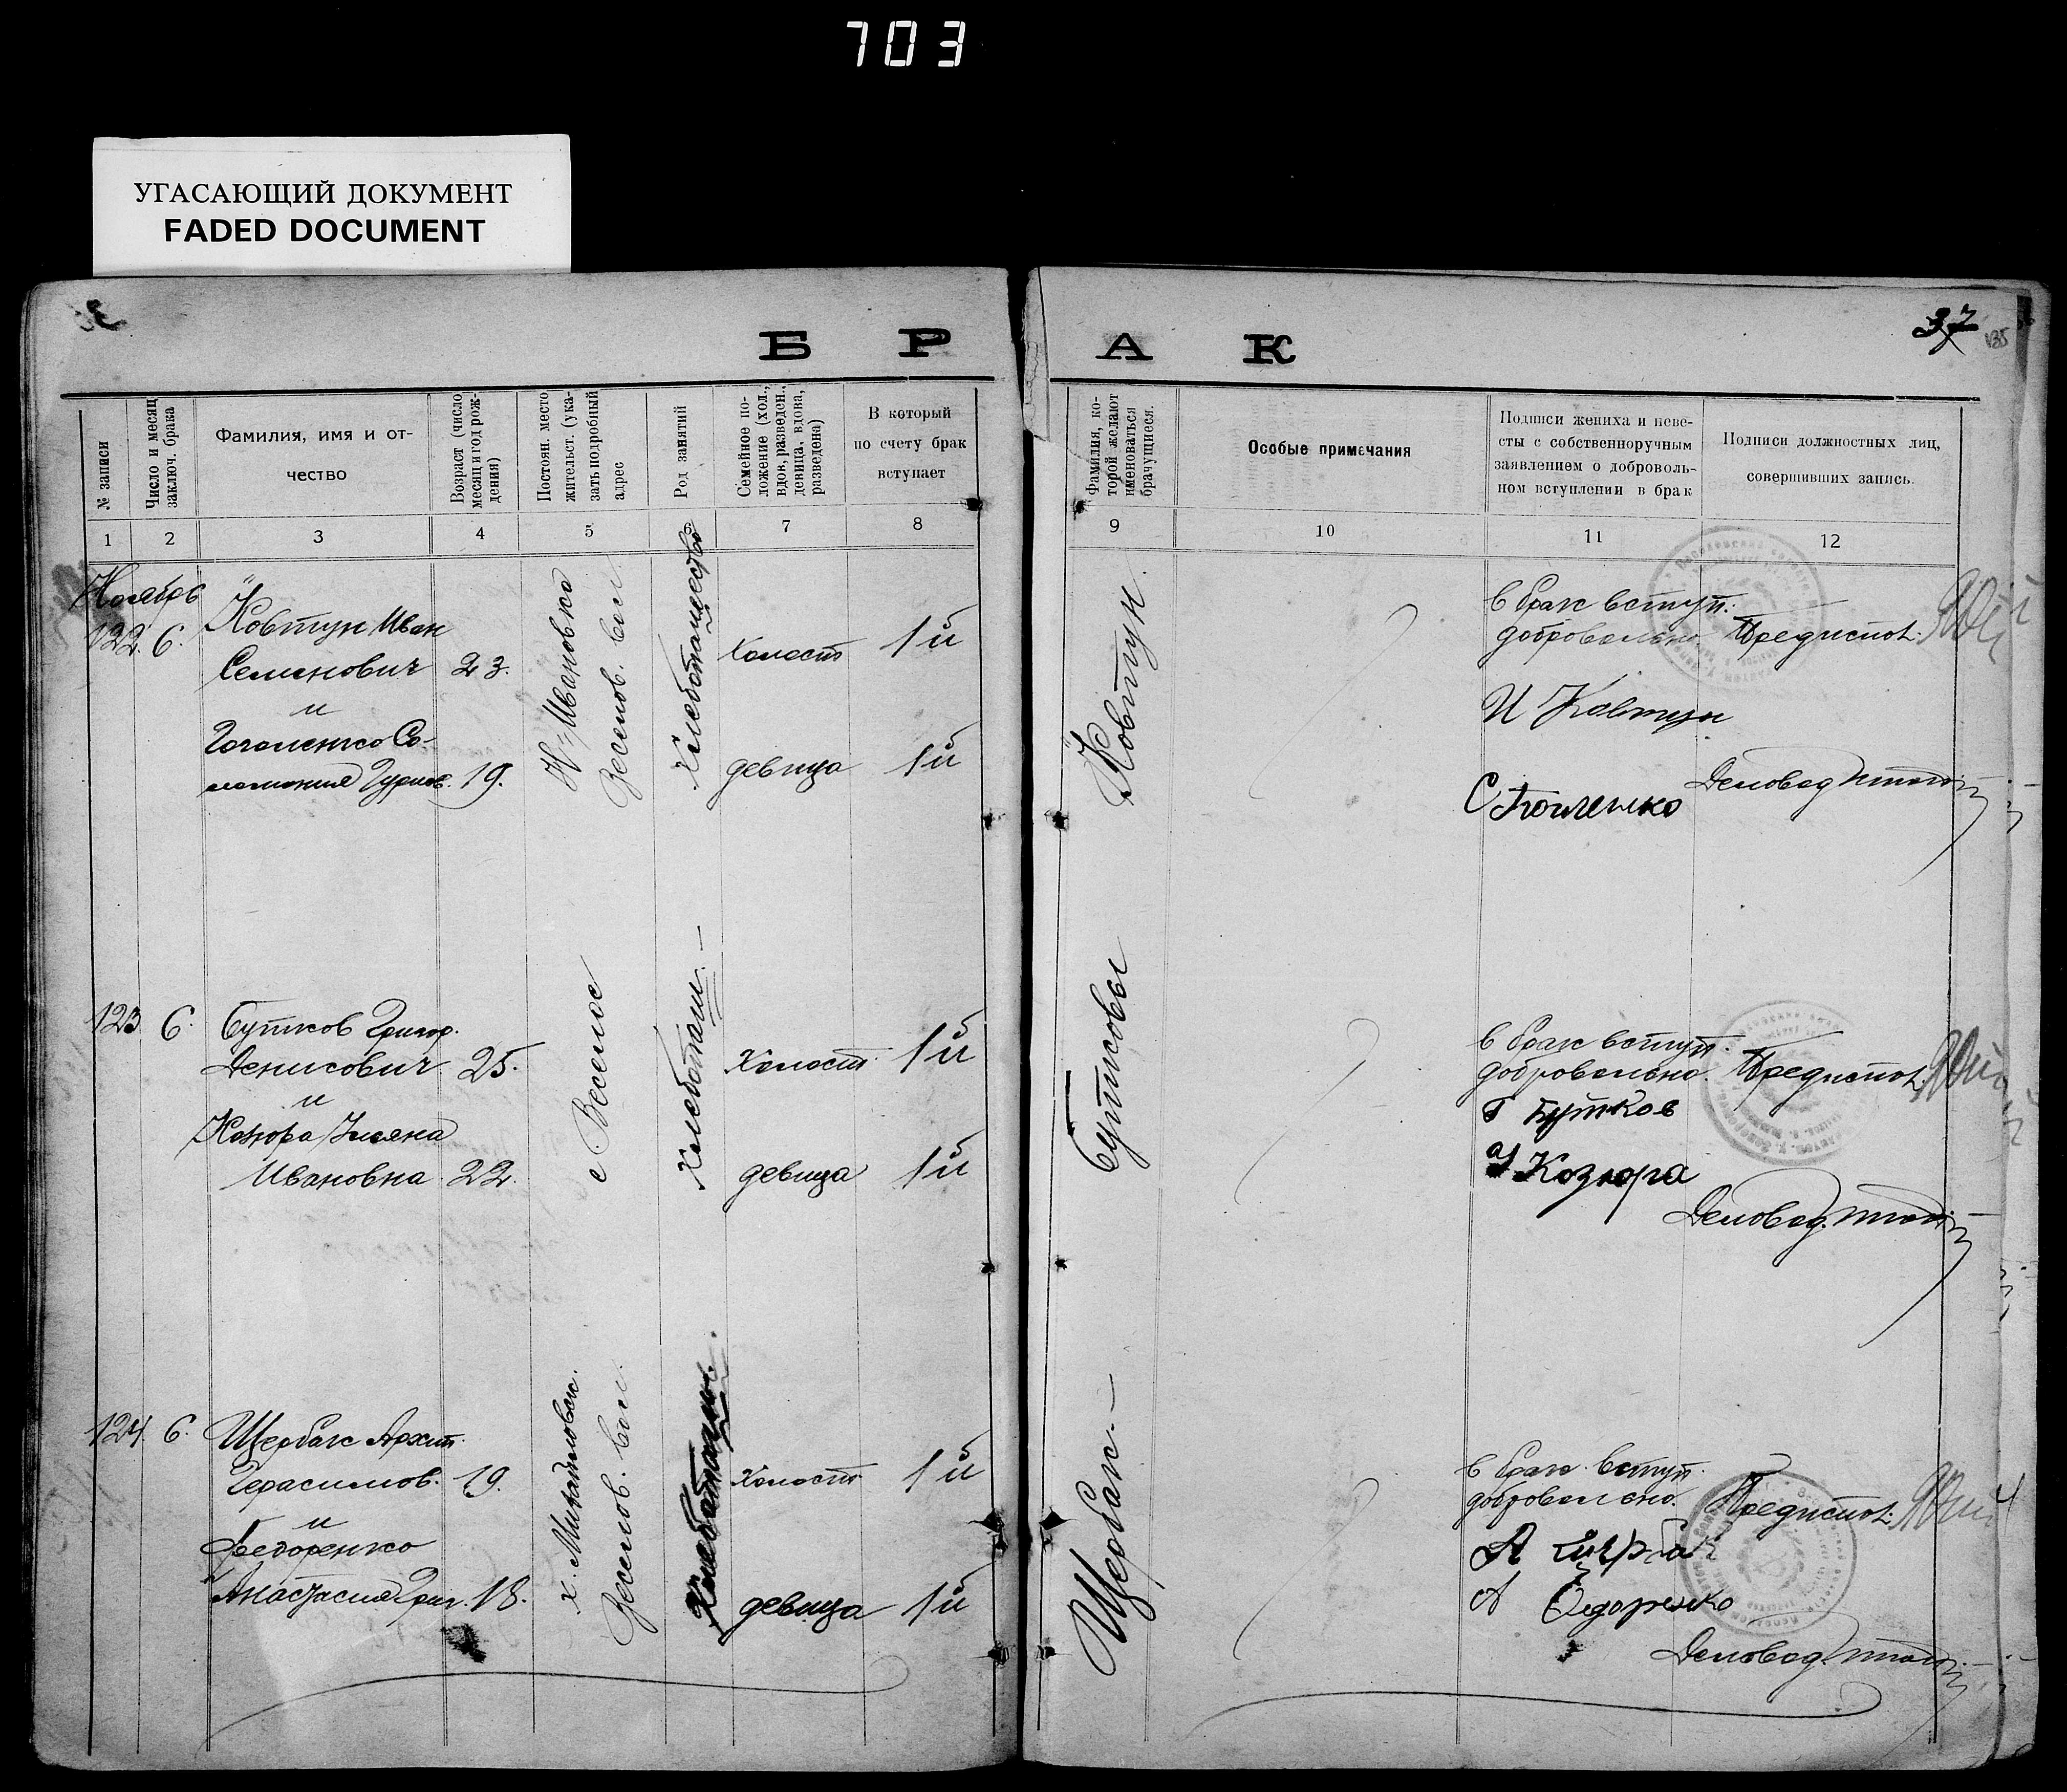 703
УГАСАЮЩИЙ ДОКУМЕНТ
FADED DOCUMENT
37
Б Р А К
№ записи
Число и месяц
заключ. брака
Фамилия, имя и от-
чество
Возраст (число
месяц и год рож-
дения)
Постоян. место
жительст. (ука-
зать подробный
адрес
Род занятий
Семейное по-
ложение (хол.,
вдов, разведен.,
девица, вдова,
разведена)
В который
по счету брак
вступает
Фамилия, ко-
торой желают
именоваться
брачущиеся.
Особые примечания
Подписи жениха и неве-
сты с собственноручным
заявлением о доброволь-
ном вступлении в брак
Подписи должностных лиц,
совершивших запись.
1 2 3 4 5 6 7 8 9 10 11 12
Ноябрь
122. 6.
Ковтун Иван
Семенович 23.
и
19.
Н-Ивановка
Веселов. вол.
Хлебопашество
Холост 1й
девица 1й
Ковтун.
в брак вступ.
добровольно
И Ковтун
Предиспол.
Деловод
123 6.
Бутков Григор.
Денисович 25.
и
Козюра
Ивановна 22.
с Веселое
Хлебопаш.
Холост 1й
девица 1й
Бутковы
в брак вступ.
добровольно.
Г Бутков
Козюра
Предиспол.
Деловод.
124. 6.
Щербак Архип
Герасимов. 19.
и
Федоренко
Анастасия Григ. 18.
х. Михайловск.
Веселов. вол.
Холост 1й
девица 1й
Щербак
в брак вступ.
добровольно.
Предиспол.
Деловод.